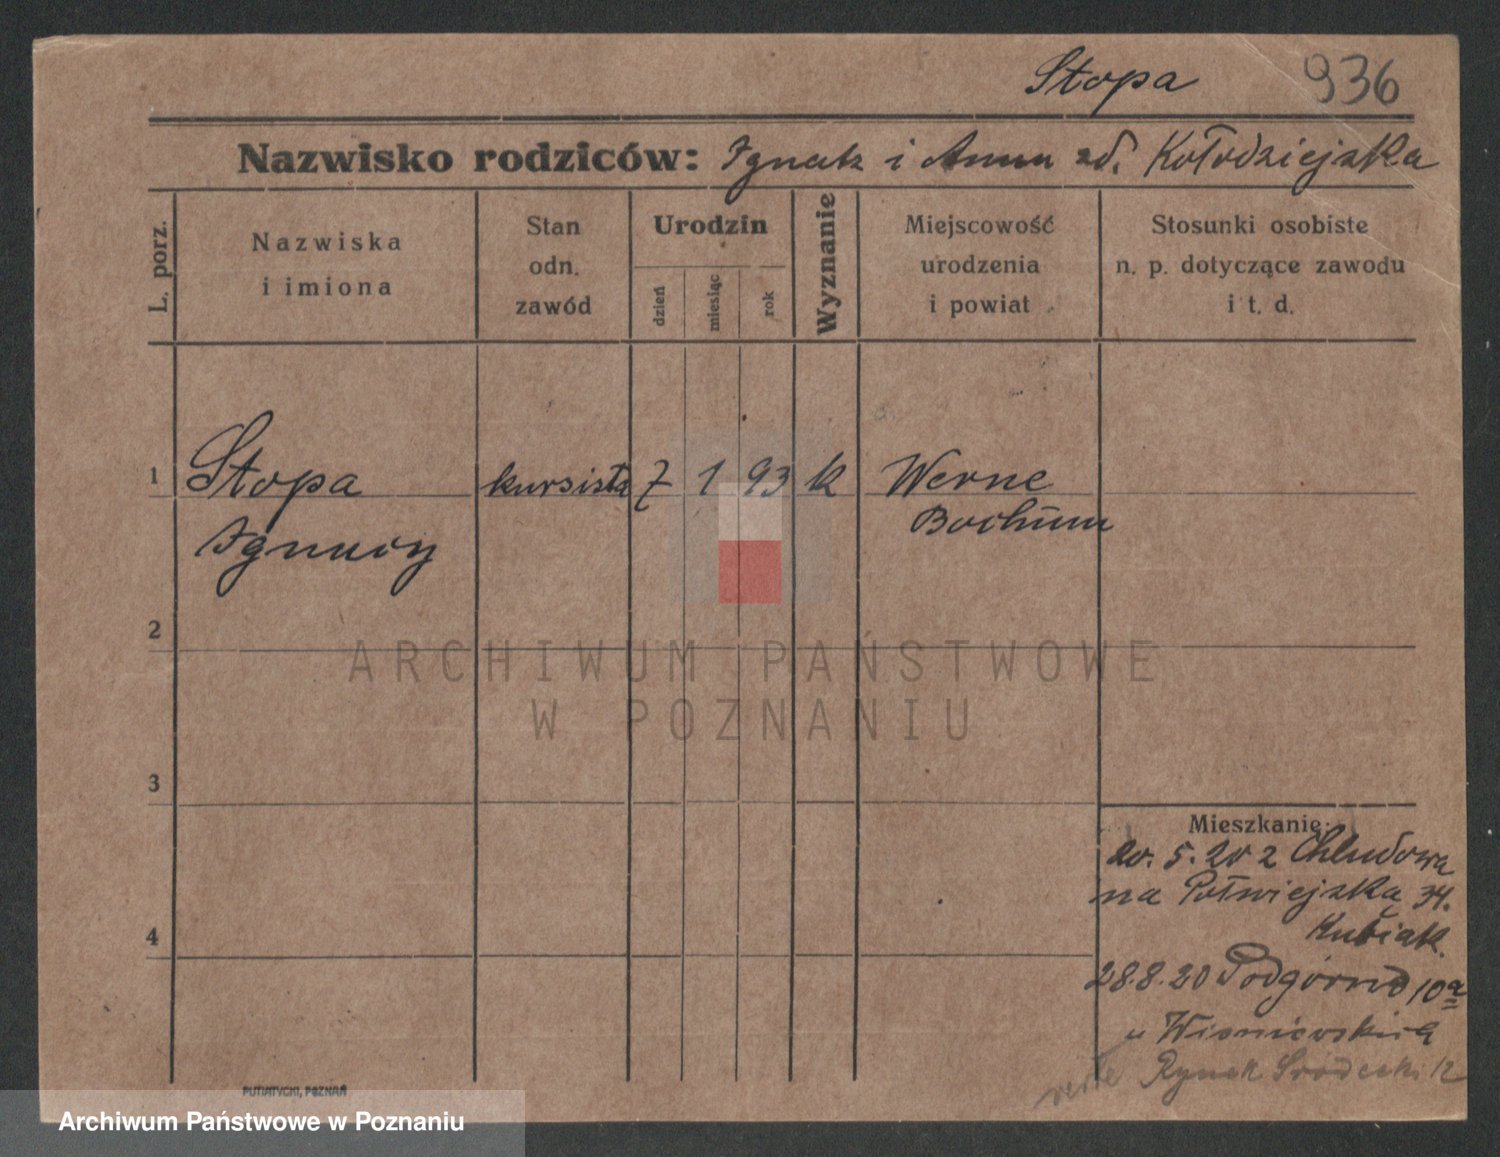 Stopa 936
Nazwisko rodziców: Ignatz i Anna zd. Kołodziejska
L. porz.
Nazwiska
i imiona
Stan
odn.
zawód
Urodzin
dzień
miesiąc
rok
Wyznanie
Miejscowość
urodzenia
i powiat
Stosunki osobiste
n. p. dotyczące zawodu
i t. d.
1 Stopa kursista 7 1 93 k Werne
Bochum
Ignacy
2
3
4
Mieszkanie:
20. 5. 20 z Chludowa
na Półwiejska 34.
Kubiak.
28.8.20 Podgórna 10a
u Wisniewskiej
Rynek Śródecki 12
verte
PUTIATYCKI, POZNAŃ
ARCHIWUM PAŃSTWOWE
W POZNANIU
Archiwum Państwowe w Poznaniu